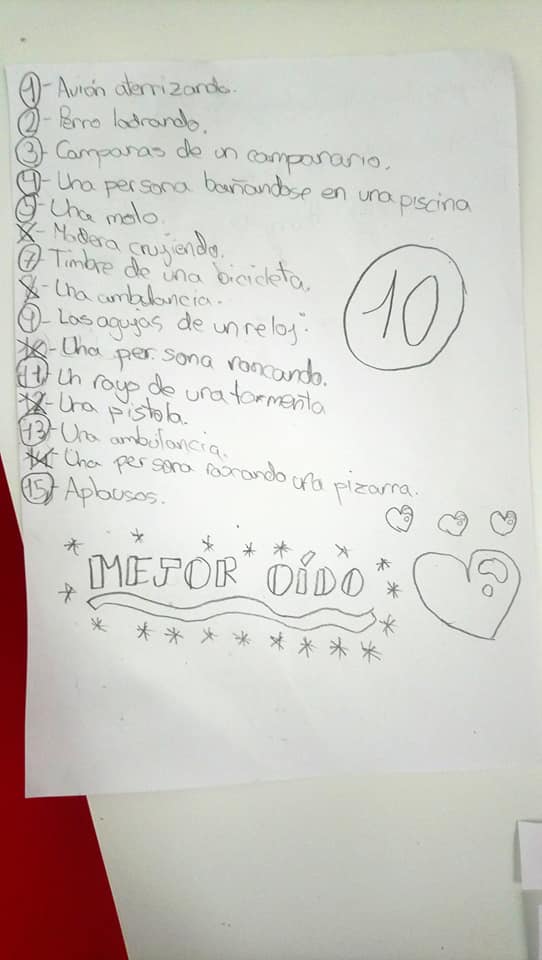 1- Avión aterrizando.
2- Perro ladrando.
3- Campanas de un campanario.
4- Una persona bañandose en una piscina
5- Una moto.
6- Madera crujiendo.
7- Timbre de una bicicleta.
8- Una ambulancia.
9- Las agujas de un reloj.
10- Una persona roncando.
11- Un rayo de una tormenta
12- Una pistola.
13- Una ambulancia.
14- Una persona rascando una pizarra.
15- Aplausos.
10
MEJOR OÍDO